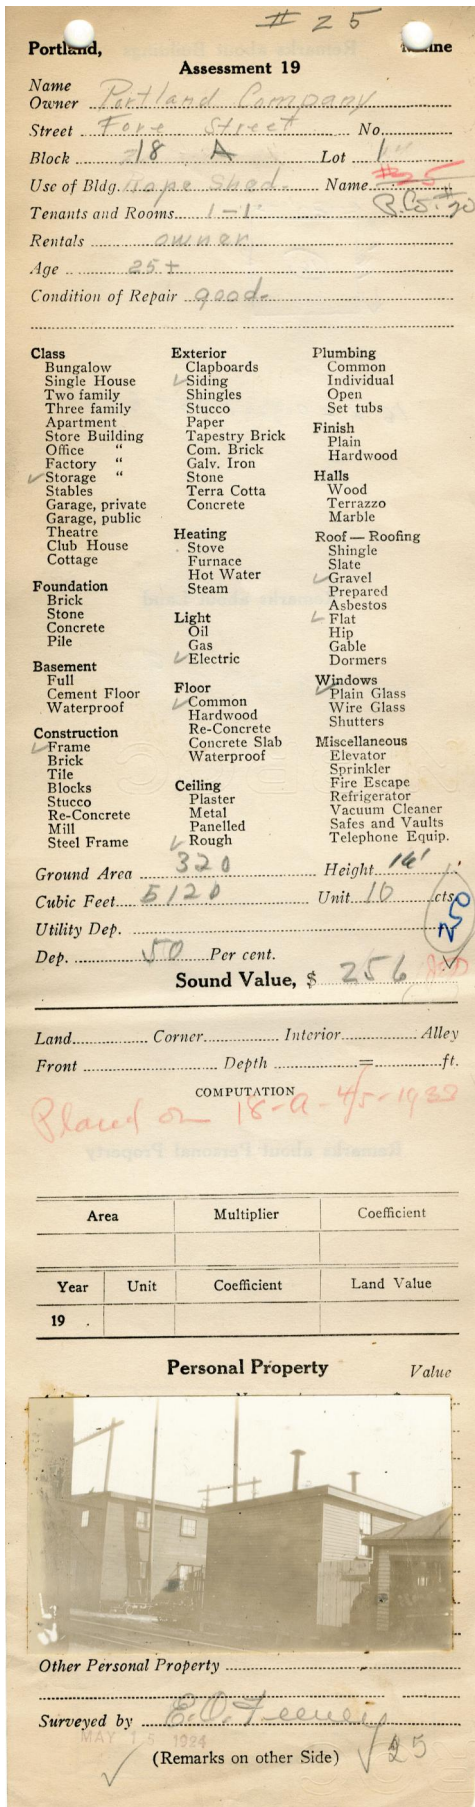 # 25
Portland, Maine
Assessment 19
Name
Owner Portland Company
Street Fore Street No.
Block 18 A Lot 1
Use of Bldg. Rope Shed. Name #25
Tenants and Rooms 1-1 P.Co. #20
Rentals owner
Age 25+
Condition of Repair good
Class
Bungalow
Single House
Two family
Three family
Apartment
Store Building
Office "
Factory "
✓ Storage "
Stables
Garage, private
Garage, public
Theatre
Club House
Cottage
Foundation
Brick
Stone
Concrete
Pile
Basement
Full
Cement Floor
Waterproof
Construction
✓ Frame
Brick
Tile
Blocks
Stucco
Re-Concrete
Mill
Steel Frame
Exterior
Clapboards
✓ Siding
Shingles
Stucco
Paper
Tapestry Brick
Com. Brick
Galv. Iron
Stone
Terra Cotta
Concrete
Heating
Stove
Furnace
Hot Water
Steam
Light
Oil
Gas
✓ Electric
Floor
✓ Common
Hardwood
Re-Concrete
Concrete Slab
Waterproof
Ceiling
Plaster
Metal
Panelled
✓ Rough
Plumbing
Common
Individual
Open
Set tubs
Finish
Plain
Hardwood
Halls
Wood
Terrazzo
Marble
Roof — Roofing
Shingle
Slate
✓ Gravel
Prepared
Asbestos
✓ Flat
Hip
Gable
Dormers
Windows
✓ Plain Glass
Wire Glass
Shutters
Miscellaneous
Elevator
Sprinkler
Fire Escape
Refrigerator
Vacuum Cleaner
Safes and Vaults
Telephone Equip.
Ground Area 320 Height 16'
Cubic Feet 5120 Unit 10 cts.
Utility Dep.
Dep. 50 Per cent.
Sound Value, $ 256
Land Corner Interior Alley
Front Depth = ft.
COMPUTATION
Placed on 18-A-4/5-1933
Area Multiplier Coefficient
Year Unit Coefficient Land Value
19 .
Personal Property Value
Other Personal Property
Surveyed by E.O. Feeney
MAY 15 1924
(Remarks on other Side) ✓ 25
✓